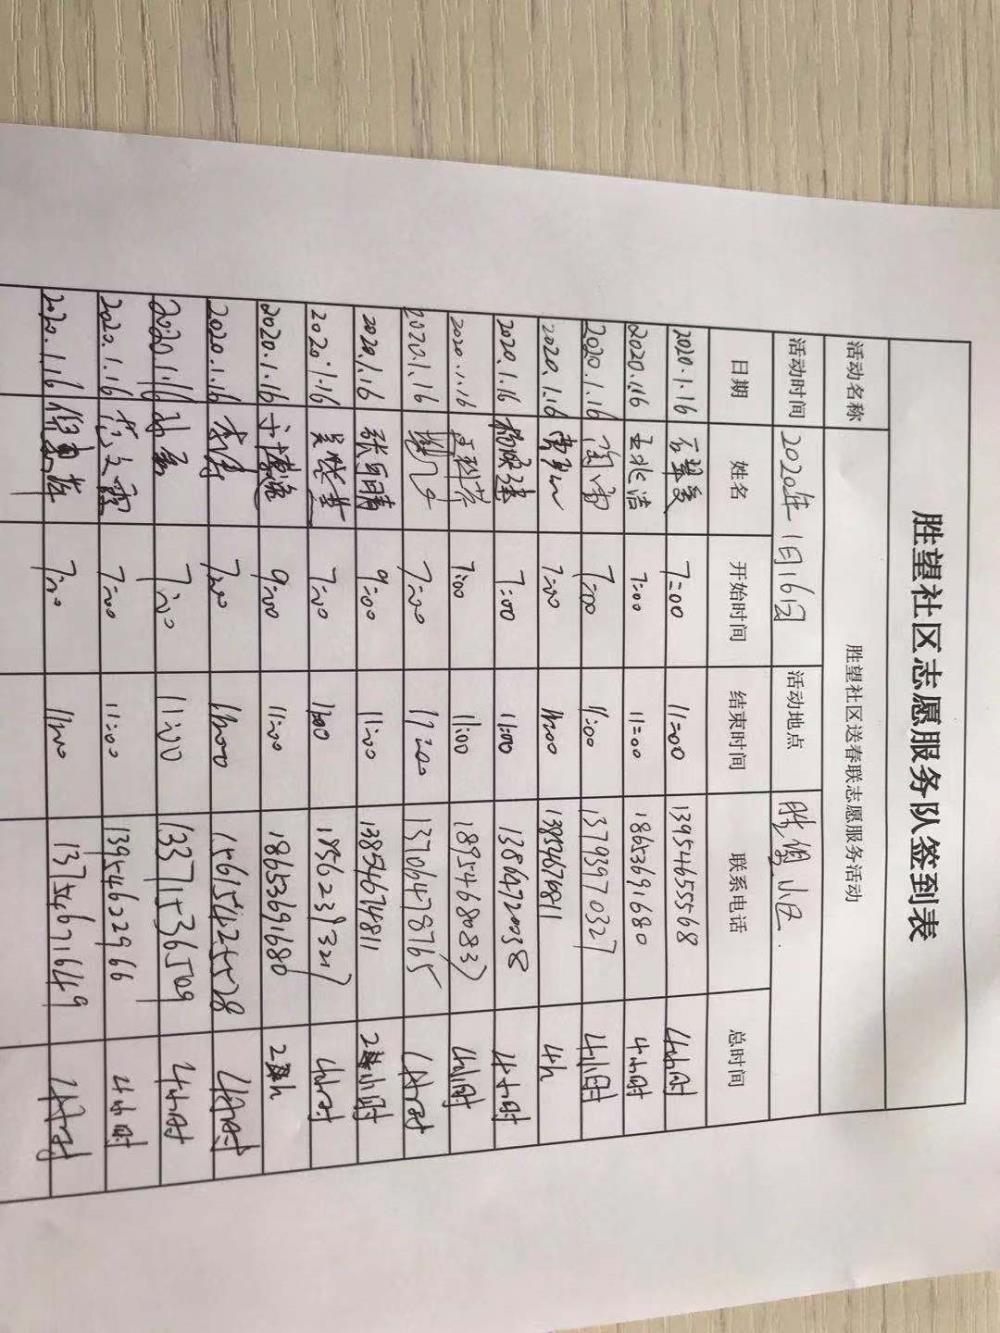 胜望社区志愿服务队签到表
活动名称 胜望社区送春联志愿服务活动
活动时间 2020年1月16日 活动地点 胜利小区
日期 姓名 开始时间 结束时间 联系电话 总时间
2020.1.16 7:00 11:00 13954655568 4小时
2020.1.16 王兆洁 7:00 11:00 18653691680 4小时
2020.1.16 7:00 11:00 13793970327 4小时
2020.1.16 7:00 11:00 13854674811 4h
2020.1.16 7:00 11:00 13864720038 4小时
2020.1.16 7:00 11:00 18954680837 4小时
2020.1.16 7:00 11:00 13706478765 4小时
2020.1.16 9:00 11:00 13854674811 2小时
2020.1.16 7:00 11:00 19562393217 4小时
2020.1.16 9:00 11:00 18653691680 2h
2020.1.16 李涛 7:00 11:00 15615425528 4小时
2020.1.16 7:00 11:00 13371536509 4小时
2020.1.16 7:00 11:00 13954622966 4小时
2020.1.16 7:00 11:00 13754671649 4小时